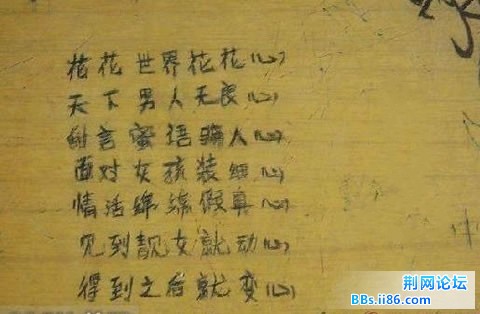 花花世界花花(心)
天下男人无良(心)
甜言蜜语骗人(心)
面对女孩装细(心)
情活绵绵假真(心)
见到靓女就动(心)
得到之后就变(心)
荆网论坛
BBs.ii86.com